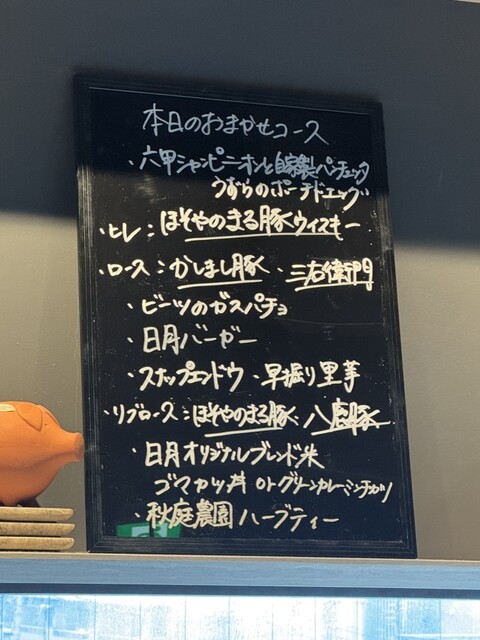 本日のおまかせコース
・六甲シャンピニオンと自家製パンチェッタ
うずらのポーチドエッグ
・ヒレ：ほそやのまる豚ウィスキー
・ロース：かしまし豚、三右衛門
・ビーツのガスパチョ
・日月バーガー
・スナップエンドウ・早掘り里芋
・リブロース：ほそやのまる豚・八鹿豚
・日月オリジナルブレンド米
ゴマカツ丼 or グリーンカレーミンチカツ
・秋庭農園ハーブティー